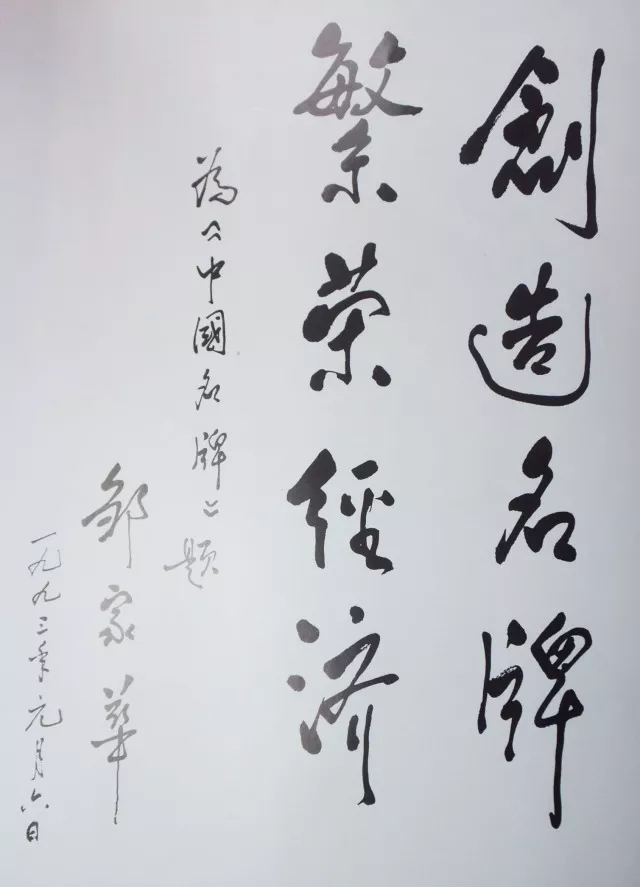 創造名牌
繁荣經济
為《中國名牌》题
邹家華
一九九三年元月六日